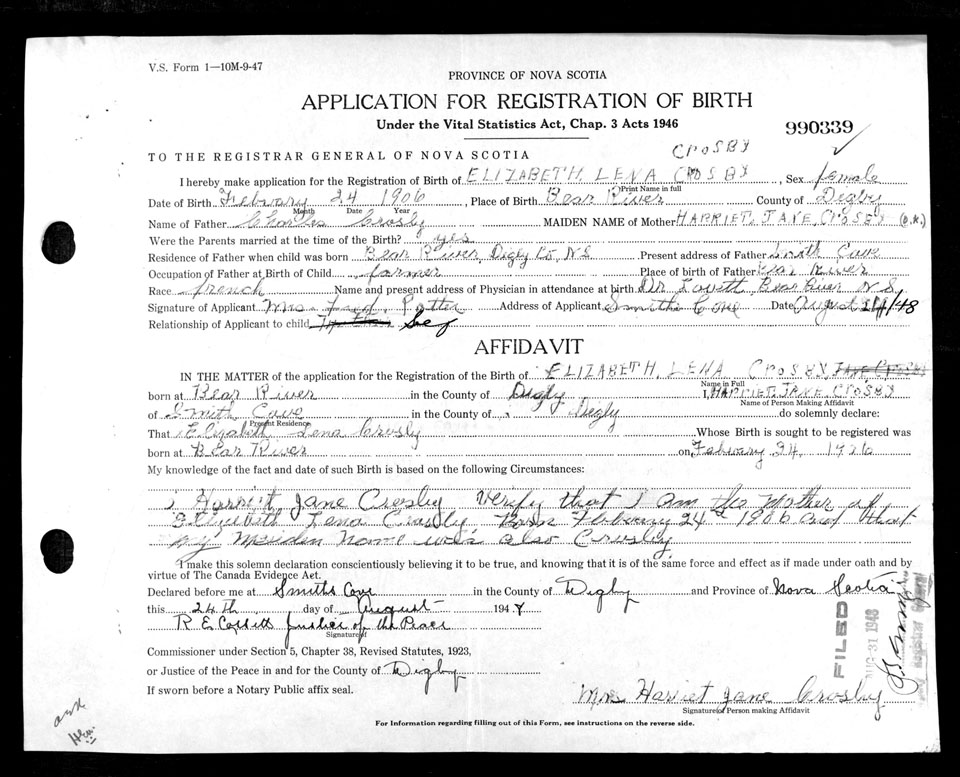 V.S. Form 1—10M-9-47
PROVINCE OF NOVA SCOTIA
APPLICATION FOR REGISTRATION OF BIRTH
Under the Vital Statistics Act, Chap. 3 Acts 1946
990339
TO THE REGISTRAR GENERAL OF NOVA SCOTIA
CROSBY
I hereby make application for the Registration of Birth of ELIZABETH, LENA CROSBY, Sex female
Print Name in full
Date of Birth February 24 1906, Place of Birth Bear River County of Digby
Month Date Year
Name of Father Charles Crosby MAIDEN NAME of Mother HARRIET, JANE CROSBY (o.k.)
Were the Parents married at the time of the Birth? yes
Residence of Father when child was born Bear River, Digby Co, N.S Present address of Father Smith Cove
Occupation of Father at Birth of Child farmer Place of birth of Father Bear River
Race french Name and present address of Physician in attendance at birth Dr. Lovett Bear River N.S.
Signature of Applicant Mrs. Potter Address of Applicant Smiths Cove Date August 24/48
Relationship of Applicant to child Self
AFFIDAVIT
IN THE MATTER of the application for the Registration of the Birth of ELIZABETH, LENA CROSBY,
Name in Full
born at Bear River in the County of Digby I, HARRIET, JANE CROSBY
Name of Person Making Affidavit
of Smith Cove in the County of Digby do solemnly declare:
Present Residence
That Elizabeth Lena Crosby Whose Birth is sought to be registered was
born at Bear River on Febuary 24, 1906
My knowledge of the fact and date of such Birth is based on the following Circumstances:
I Harriet Jane Crosby Verify that I am the Mother of
Elizabeth Lena Crosby Born Febuary 24 1906 and that
my Maiden Name was also Crosby
I make this solemn declaration conscientiously believing it to be true, and knowing that it is of the same force and effect as if made under oath and by
virtue of The Canada Evidence Act.
Declared before me at Smiths Cove in the County of Digby and Province of Nova Scotia
this 24th day of August 1948
R E Justice of the Peace
Signature of
Commissioner under Section 5, Chapter 38, Revised Statutes, 1923,
or Justice of the Peace in and for the County of Digby
If sworn before a Notary Public affix seal.
FILED
AUG 31 1948
Mrs Harriet Jane Crosby
Signature of Person making Affidavit
For Information regarding filling out of this Form, see instructions on the reverse side.